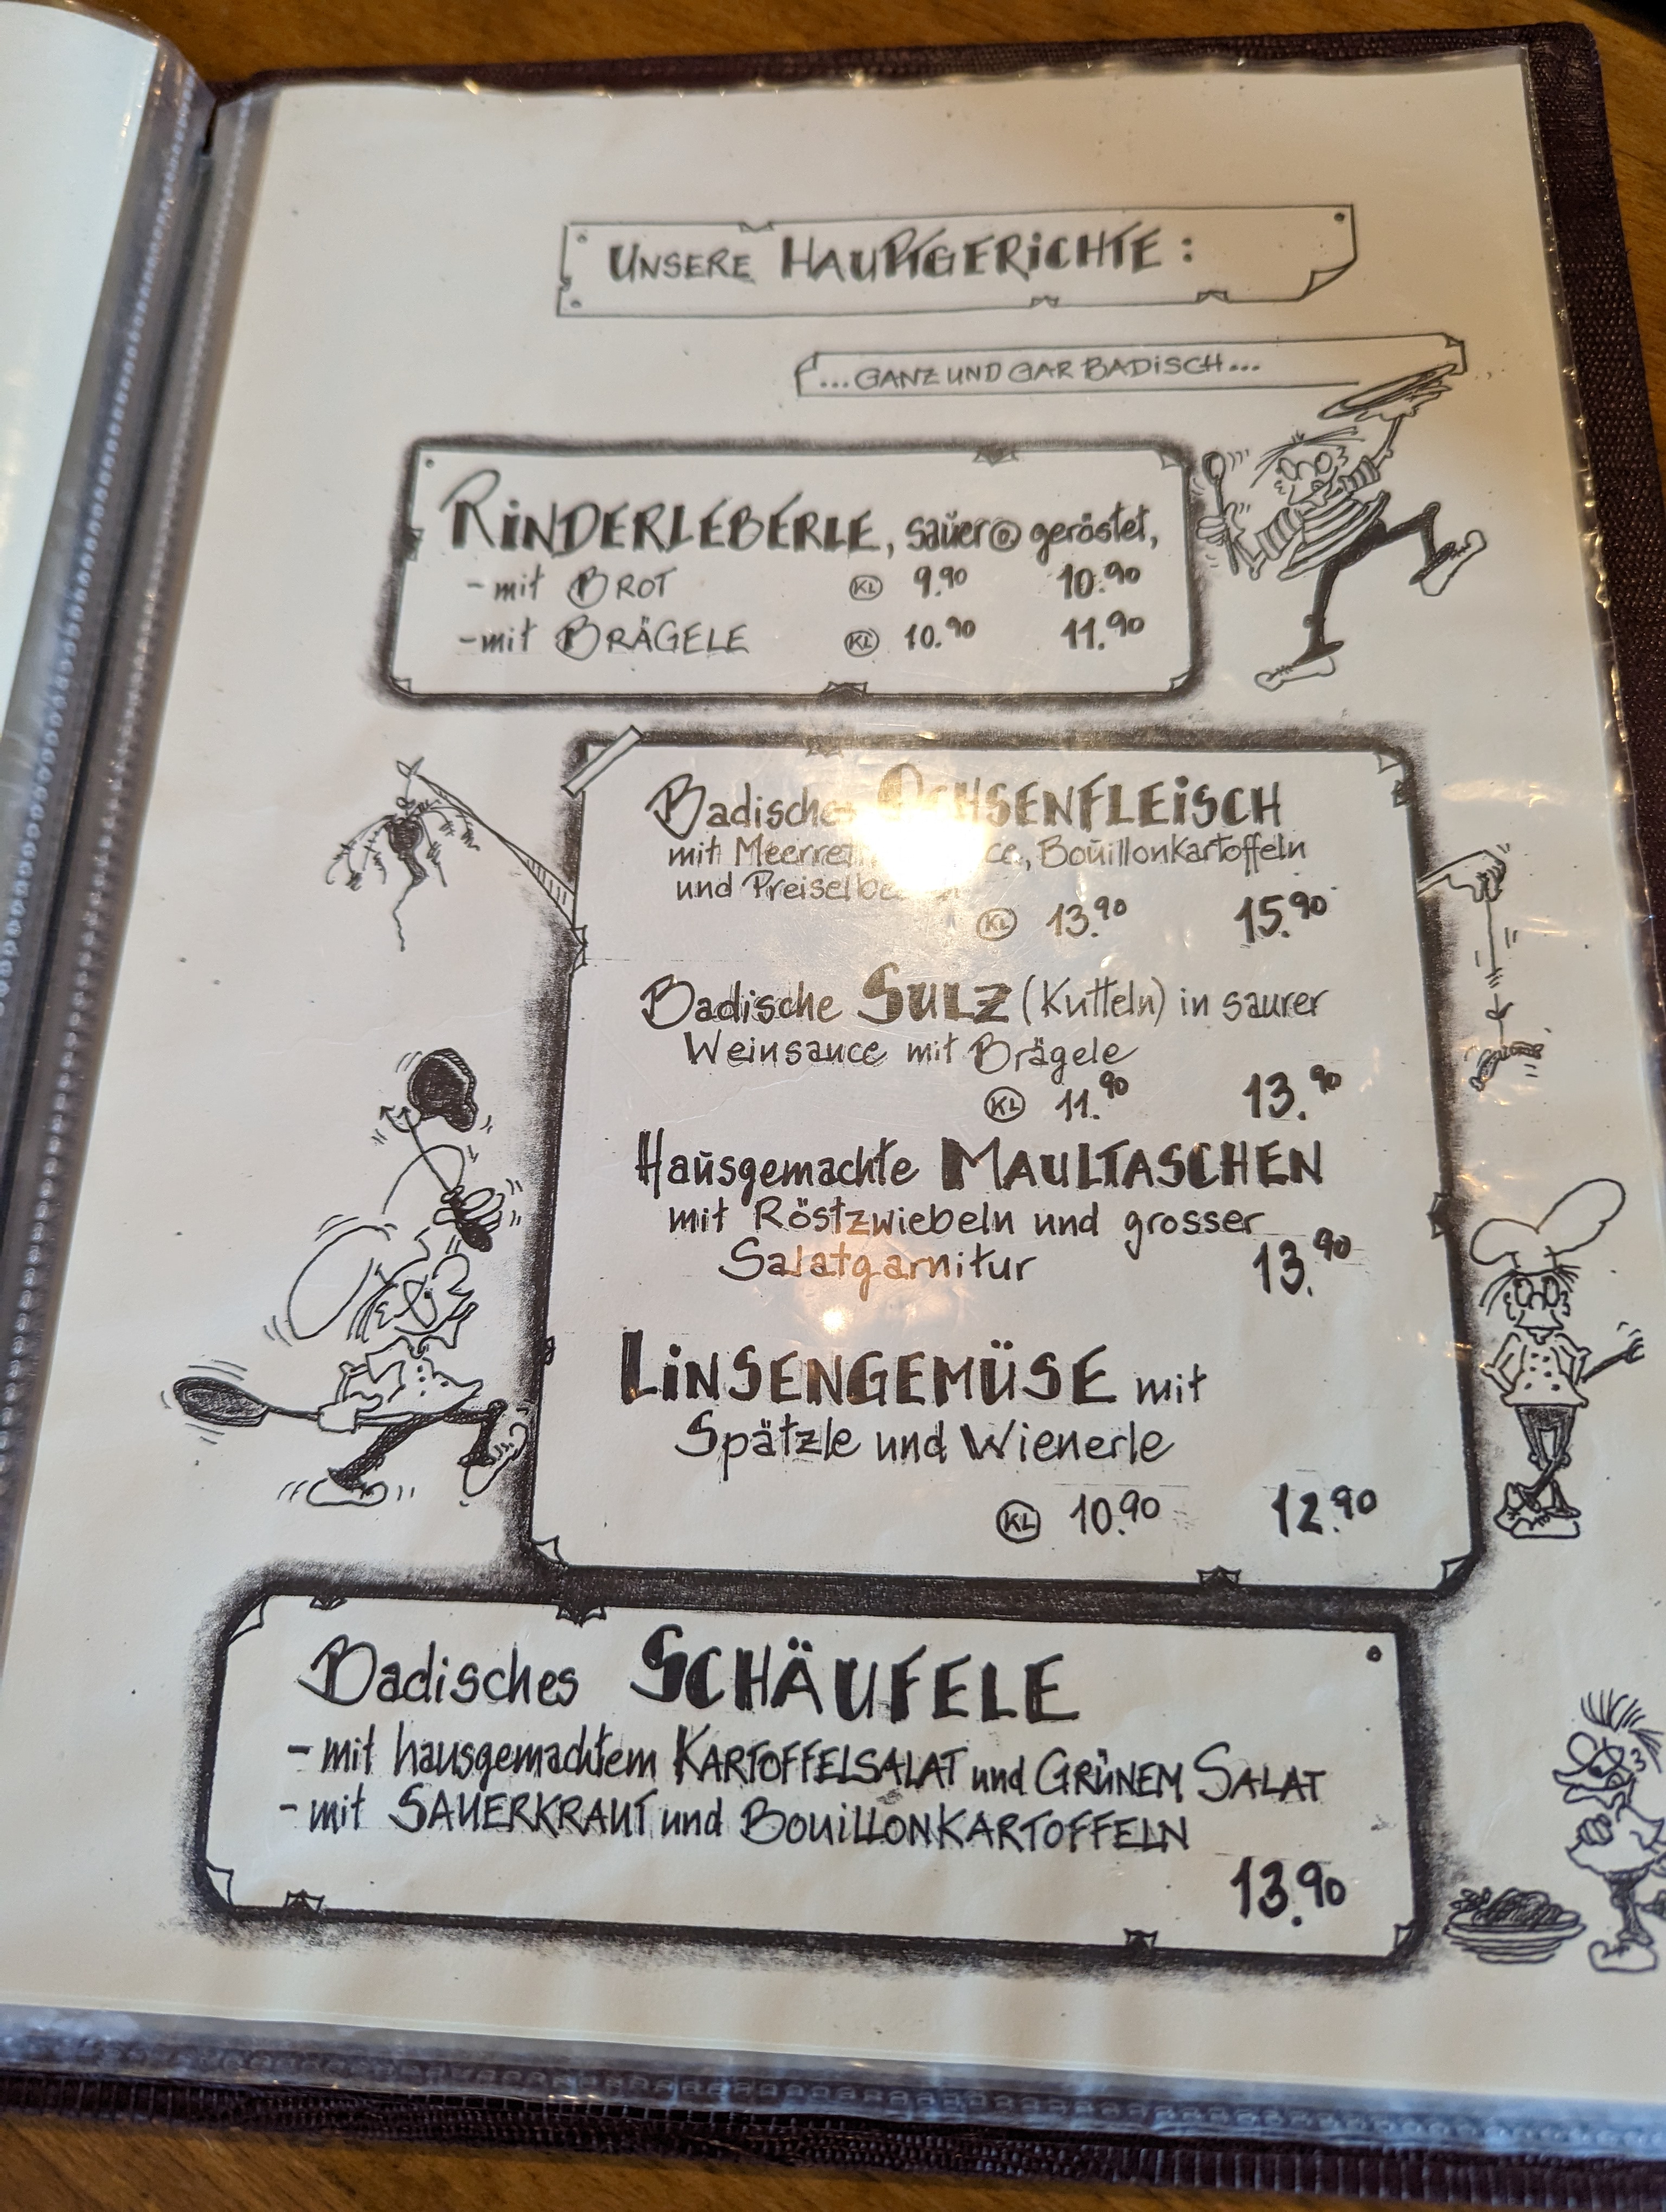 UNSERE HAUPTGERICHTE:
...GANZ UND GAR BADISCH...
RINDERLEBERLE, sauer o geröstet,
- mit BROT KL 9.90 10.90
- mit BRÄGELE KL 10.90 11.90
Badisches OCHSENFLEISCH
mit Bouillonkartoffeln
und
KL 13.90 15.90
Badische SULZ (Kutteln) in saurer
Weinsauce mit Brägele
KL 11.90 13.90
Hausgemachte MAULTASCHEN
mit Röstzwiebeln und grosser
Salatgarnitur 13.90
LINSENGEMÜSE mit
Spätzle und Wienerle
KL 10.90 12.90
Badisches SCHÄUFELE
- mit hausgemachtem KARTOFFELSALAT und GRÜNEM SALAT
- mit SAUERKRAUT und BOUILLONKARTOFFELN
13.90